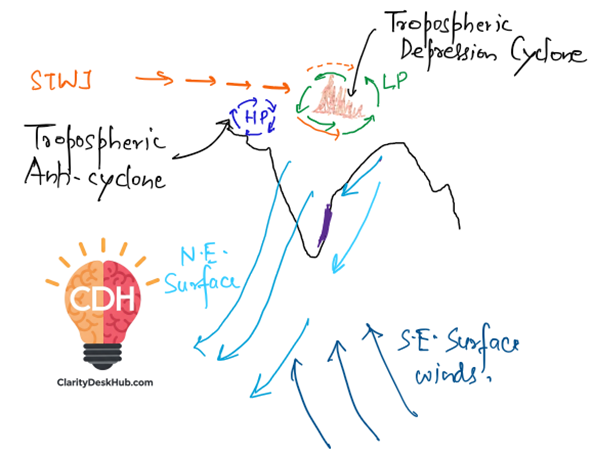 Tropospheric
Depression Cyclone
STWJ
LP
HP
Tropospheric
Anti-cyclone
N.E.
Surface
CDH
ClarityDeskHub.com
S.E. Surface
winds.